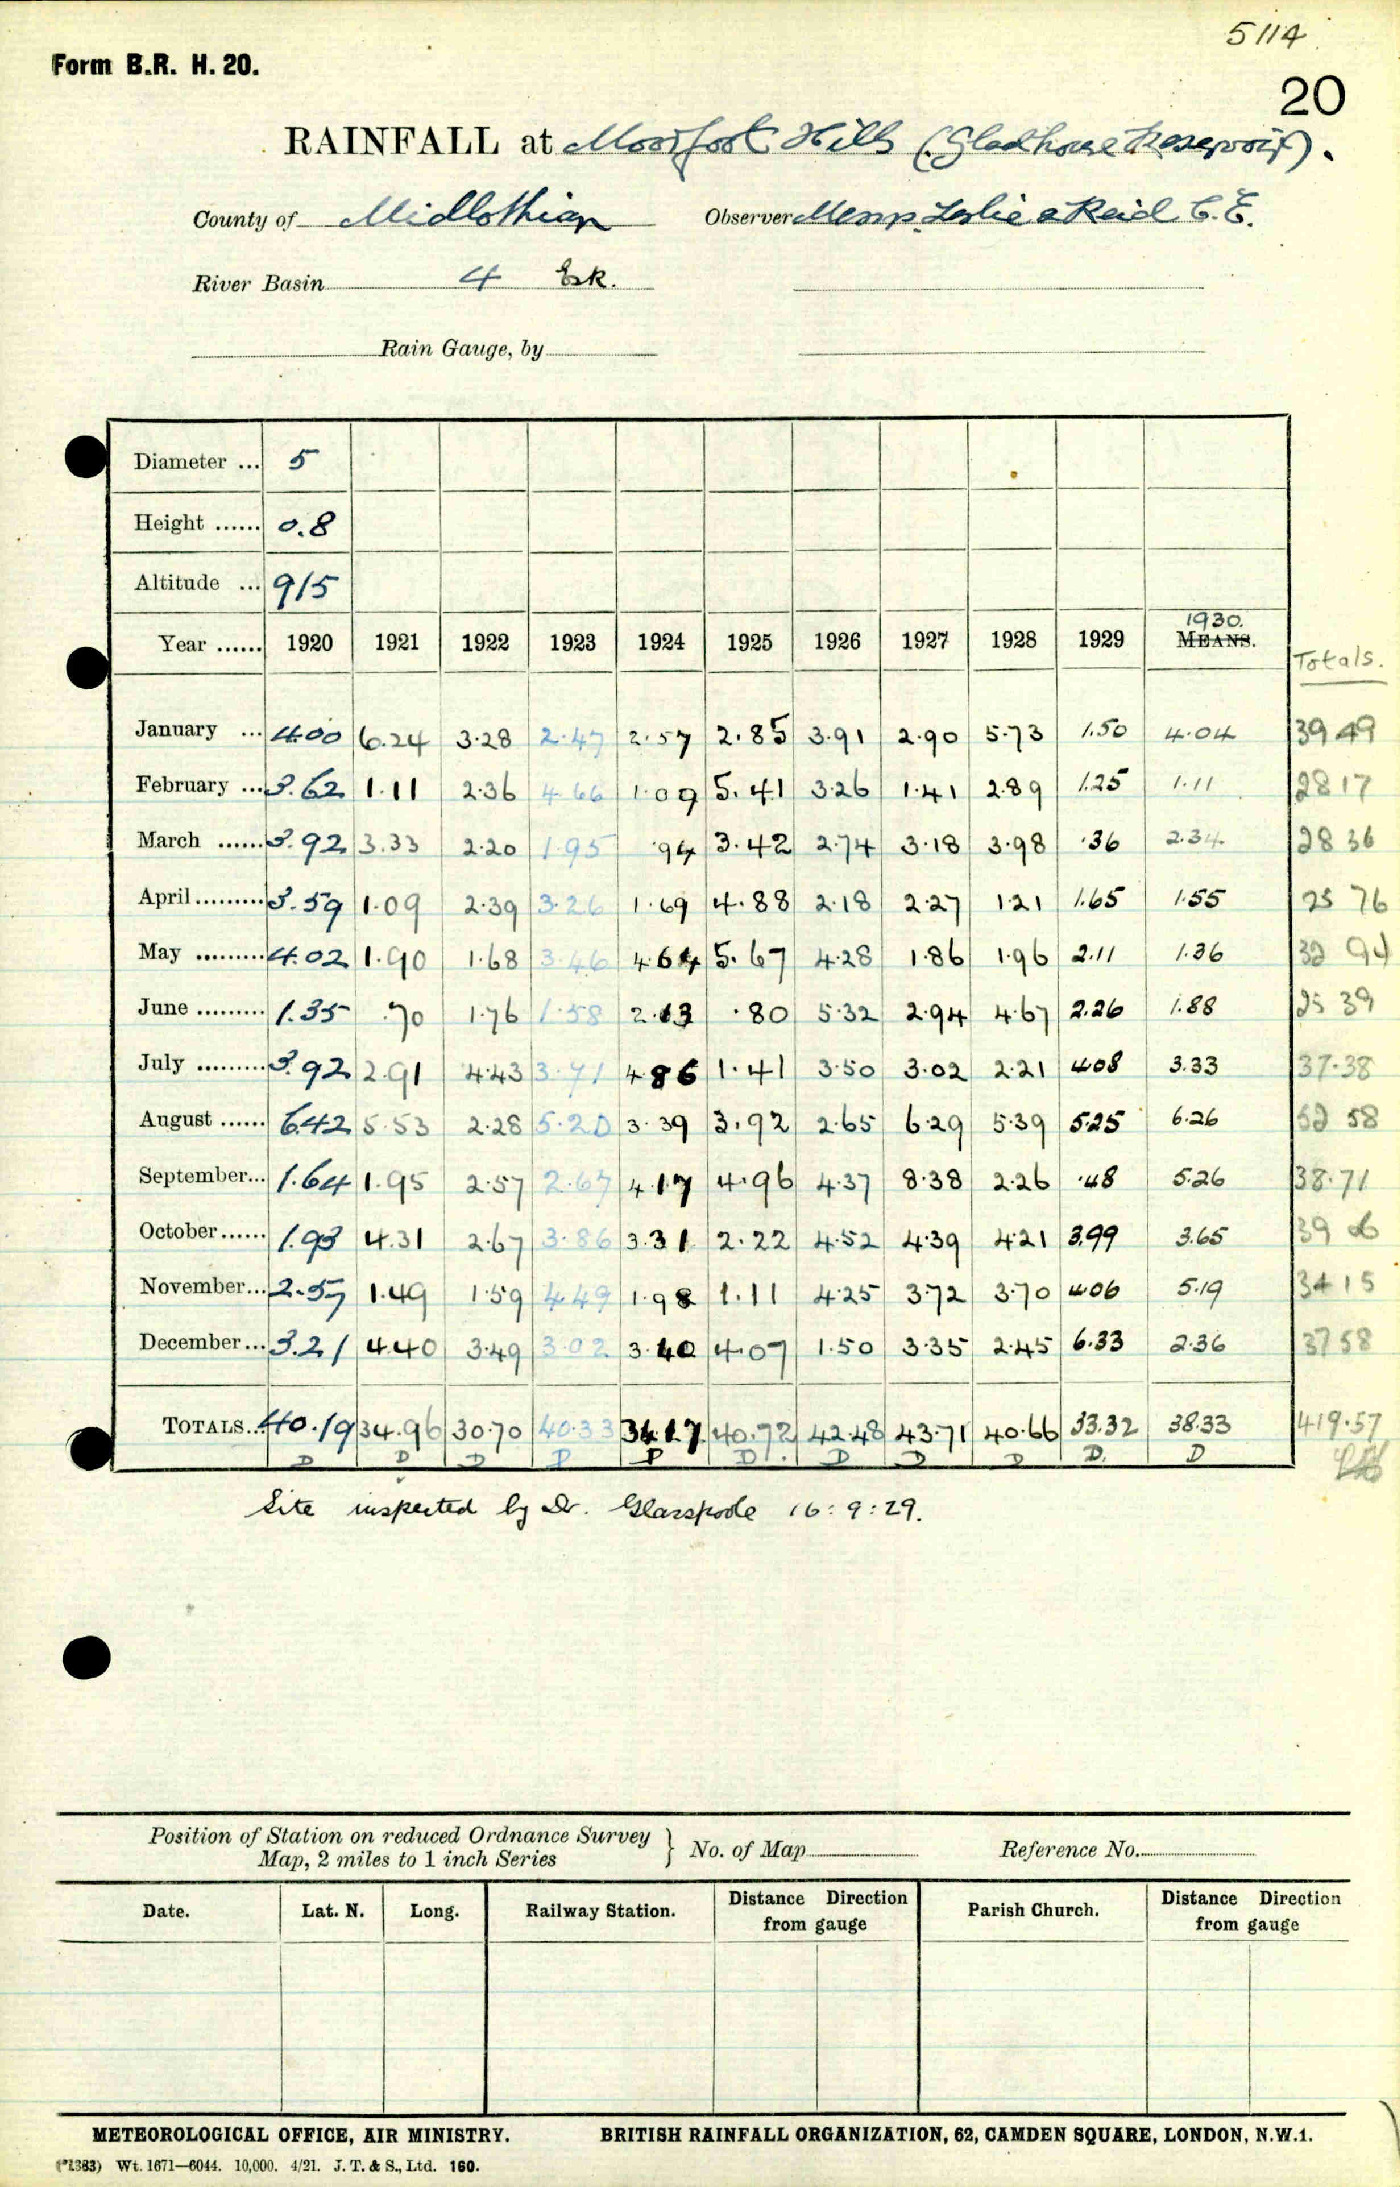 5114
Form B.R. H. 20.
20
RAINFALL at Moorfoot Hills (Gladhouse Reservoir).
County of Midlothian Observer Messrs. Leslie & Reid C.E.
River Basin 4 Esk.
Rain Gauge, by
Diameter ... 5
Height ...... 0.8
Altitude ... 915
1930.
Year ...... 1920 1921 1922 1923 1924 1925 1926 1927 1928 1929 MEANS. Totals.
January ... 4.00 6.24 3.28 2.47 2.57 2.85 3.91 2.90 5.73 1.50 4.04 39 49
February ... 3.62 1.11 2.36 4.66 1.09 5.41 3.26 1.41 2.89 1.25 1.11 28 17
March ...... 3.92 3.33 2.20 1.95 .94 3.42 2.74 3.18 3.98 .36 2.34 28 36
April ......... 3.59 1.09 2.39 3.26 1.69 4.88 2.18 2.27 1.21 1.65 1.55 25 76
May ......... 4.02 1.90 1.68 3.46 4.64 5.67 4.28 1.86 1.96 2.11 1.36 32 94
June ......... 1.35 .70 1.76 1.58 2.13 .80 5.32 2.94 4.67 2.26 1.88 25 39
July ......... 3.92 2.91 4.43 3.71 4.86 1.41 3.50 3.02 2.21 4.08 3.33 37.38
August ...... 6.42 5.53 2.28 5.20 3.39 3.92 2.65 6.29 5.39 5.25 6.26 52 58
September... 1.64 1.95 2.57 2.67 4.17 4.96 4.37 8.38 2.26 .48 5.26 38.71
October...... 1.93 4.31 2.67 3.86 3.31 2.22 4.52 4.39 4.21 3.99 3.65 39 06
November... 2.57 1.49 1.59 4.49 1.98 1.11 4.25 3.72 3.70 4.06 5.19 34 15
December... 3.21 4.40 3.49 3.02 3.40 4.07 1.50 3.35 2.45 6.33 2.36 37 58
TOTALS... 40.19 34.96 30.70 40.33 34.17 40.72 42.48 43.71 40.66 33.32 38.33 419.57
D D D D D D D D D D. D
Site inspected by Dr. Glasspoole 16:9:29.
Position of Station on reduced Ordnance Survey
Map, 2 miles to 1 inch Series } No. of Map Reference No.
Date. Lat. N. Long. Railway Station. Distance Direction from gauge Parish Church. Distance Direction from gauge
METEOROLOGICAL OFFICE, AIR MINISTRY. BRITISH RAINFALL ORGANIZATION, 62, CAMDEN SQUARE, LONDON, N.W.1.
(*1383) Wt. 1671—6044. 10,000. 4/21. J. T. & S., Ltd. 160.